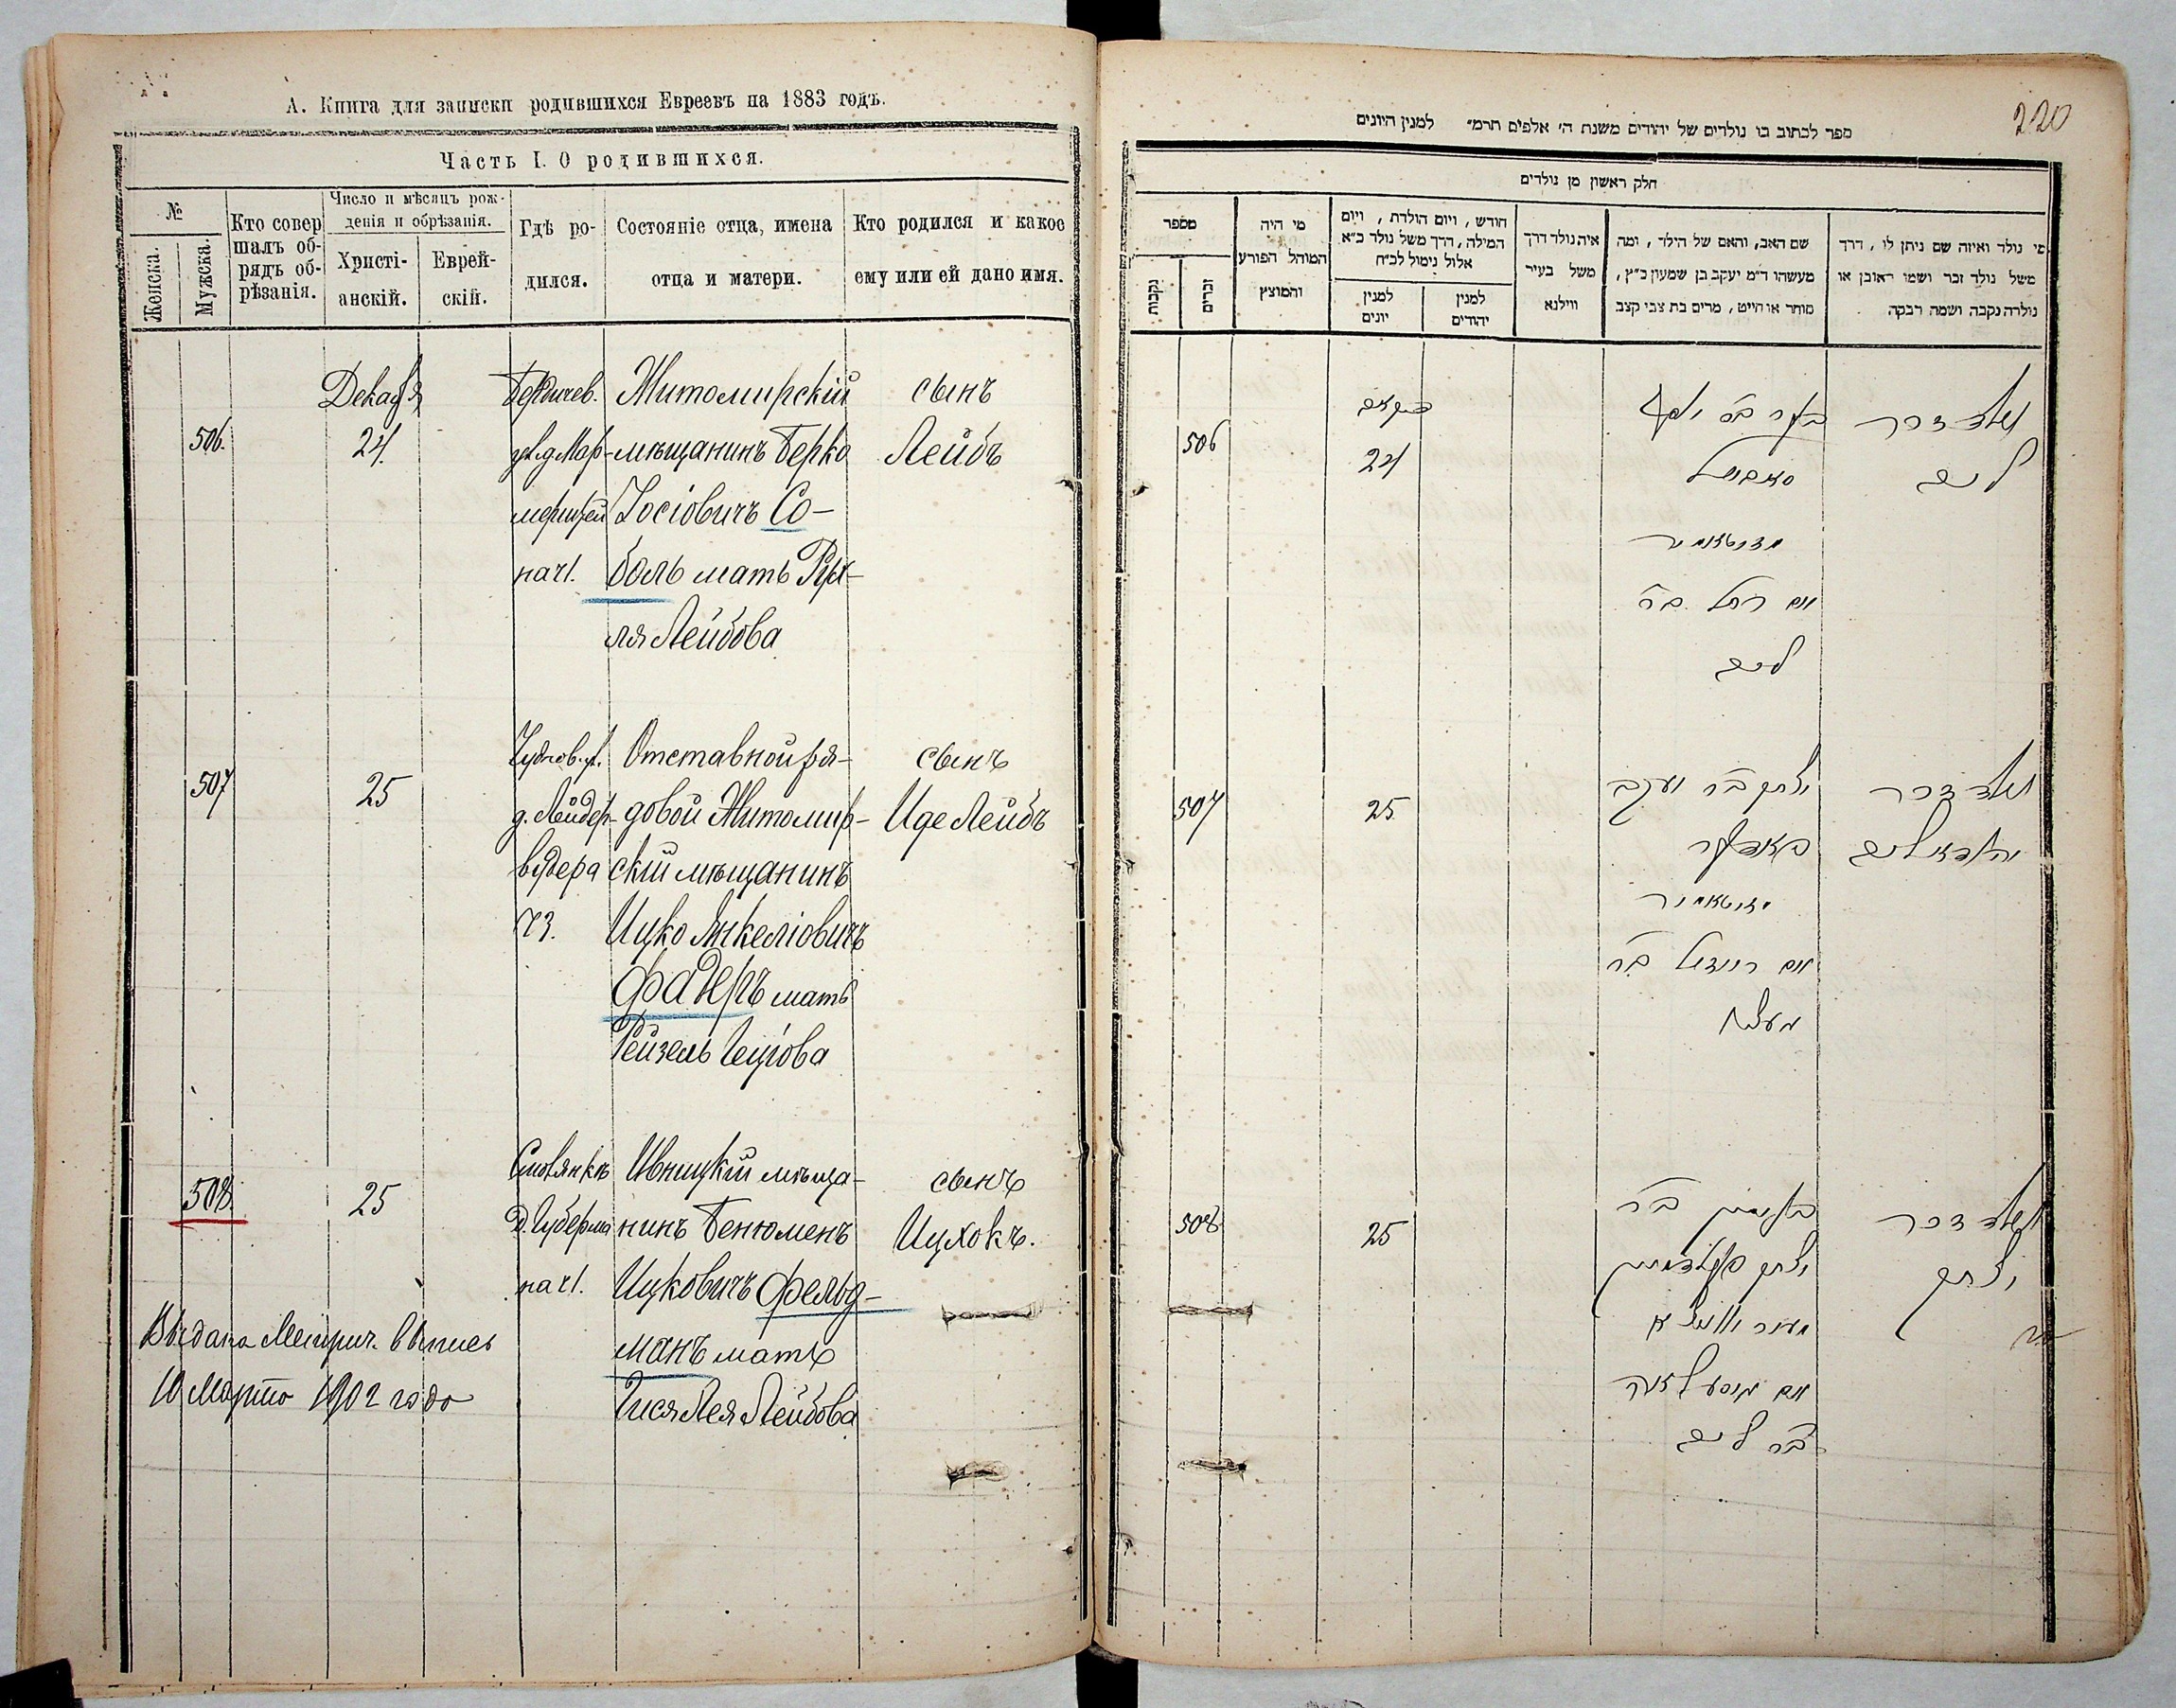 А. Книга для записки родившихся Евреевъ на 1883 годъ.
Часть I. О родившихся.
№
Женска.
Мужска.
Кто совер
шалъ об-
рядъ об-
рѣзанія.
Число и мѣсяцъ рож-
денія и обрѣзанія.
Христі-
анскій.
Еврей-
скій.
Гдѣ ро-
дился.
Состояніе отца, имена
отца и матери.
Кто родился и какое
ему или ей дано имя.
506.
Декабря
24.
Бердичев.
нач.
Житомирскій
мѣщанинъ Берко
Іосіовичъ Со-
боль мать Рух-
ля Лейбова
сынъ
Лейбъ
507
25
Чуднов. ул.
д. Лейдер-
73.
Отставной ря-
довой Житомир-
скій мѣщанинъ
Ицко Янкеліовичъ
Фадеръ мать
Рейзель
сынъ
Иде Лейбъ
508.
25
Смолянкѣ
д. Губерма
нач.
Ивницкій мѣща-
нинъ Бенюменъ
Ицковичъ Фельд-
манъ мать
Лея Лейбова
сынъ
Ицхокъ.
Выдана Метрич. выпись
10 Марта 1902 года
220
ספר לכתוב בו נולדים של יהודים משנת ה' אלפים תרמ" למנין היונים
חלק ראשון מן נולדים
מספר
נקבות
זכרים
מי היה
המוהל הפורע
והמוצץ
חודש, ויום הולדת, ויום
המילה, דרך משל נולד כ"א
אלול נימול לכ"ח
למנין
יונים
למנין
יהודים
איה נולד דרך
משל בעיר
ווילנא
שם האב, והאם של הילד, ומה
מעשהו ד"מ יעקב בן שמעון כ"ץ,
סוחר או חייט, מרים בת צבי קצב
מי נולד ואיזה שם ניתן לו, דרך
משל נולד זכר ושמו ראובן או
נולדה נקבה ושמה רבקה
506
24
בער ב"ר יוסף
סאבויל
מזיטאמיר
אם רחל ב"ר
ליב
נולד זכר
ליב
507
25
יצחק ב"ר יעקב
מזיטאמיר
אם רייזיל ב"ר
נולד זכר
508
25
בנימין ב"ר
יצחק פעלדמאן
ב"ר ליב
נולד זכר
יצחק